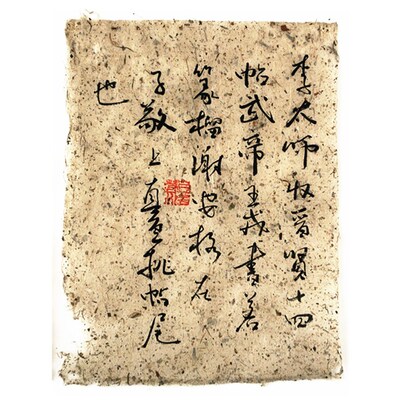 李太师收晋贤十四
帖武帝王戎书若
篆籀谢安格在
子敬上真宜批帖尾
也